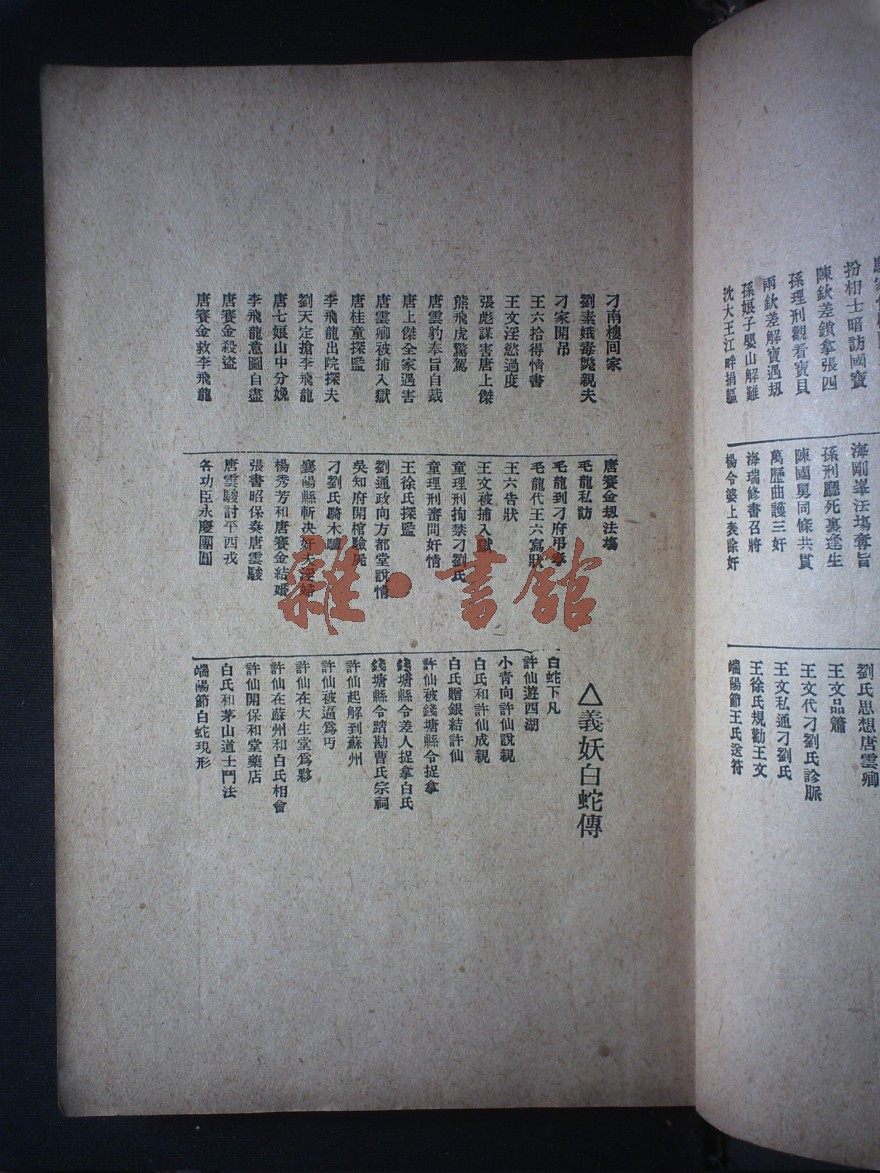 孫理刑觀看寶貝
兩欽差解寶遇刼
孫娘子嬰山解難
沈大王江畔捐軀
海剛峯法塲奪旨
孫刑廳死裏逢生
陳國舅同條共貫
萬歷曲護三奸
海瑞修書召將
楊令婆上表除奸
劉氏思想唐雲卿
王文品簫
王文代刁劉氏診脈
王文私通刁劉氏
王徐氏規勸王文
端陽節王氏送符
扮相士暗訪國寶
陳欽差鎖拿張四
刁南樓回家
劉素娥毒斃親夫
刁家開吊
王六拾得情書
王文淫慾過度
張彪謀害唐上傑
熊飛虎驚駕
唐雲豹奉旨自裁
唐上傑全家遇害
唐雲卿被捕入獄
唐桂童探監
李飛龍出院探夫
劉天定搶李飛龍
唐七娘山中分娩
李飛龍意圖自盡
唐賽金殺盜
唐賽金救李飛龍
唐賽金刼法塲
毛龍私訪
毛龍到刁府吊孝
毛龍代王六寫狀
王六告狀
王文被捕入獄
童理刑拘禁刁劉氏
童理刑審問奸情
王徐氏探監
劉通政向方都堂說情
吳知府開棺驗屍
刁劉氏騎木驢
襄陽縣斬决奸夫淫婦
楊秀芳和唐賽金結婚
張書昭保奏唐雲駿
唐雲駿討平西戎
各功臣永慶團圓
△義妖白蛇傳
白蛇下凡
許仙遊西湖
小青向許仙說親
白氏和許仙成親
白氏贈銀結許仙
許仙被錢塘縣令捉拿
錢塘縣令差人捉拿白氏
錢塘縣令踏勘曹氏宗祠
許仙起解到蘇州
許仙被逼爲丐
許仙在大生堂爲夥
許仙在蘇州和白氏相會
許仙開保和堂藥店
白氏和茅山道士鬥法
端陽節白蛇現形
雜·書館